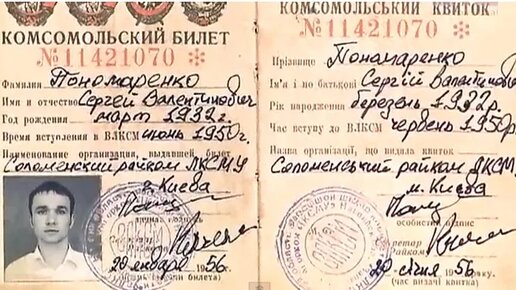 КОМСОМОЛЬСКИЙ БИЛЕТ
№ 11421070
Фамилия Пономаренко
Имя и отчество Сергей Валентинович
Год рождения март 1932 г.
Время вступления в ВЛКСМ июнь 1950 г.
Наименование организации, выдавшей билет
Соломенский райком ЛКСМУ
г. Киева
20 января 1956 г.
КОМСОМОЛЬСЬКИЙ КВИТОК
№ 11421070
Прізвище Пономаренко
Ім'я і по батькові Сергій Валентинович
Рік народження березень 1932 р.
Час вступу до ВЛКСМ червень 1950 р.
Назва організації, що видала квиток
Соломенський райком ЛКСМУ
м. Києва
Особистий підпис
20 січня 1956 р.
(час видачі квитка)